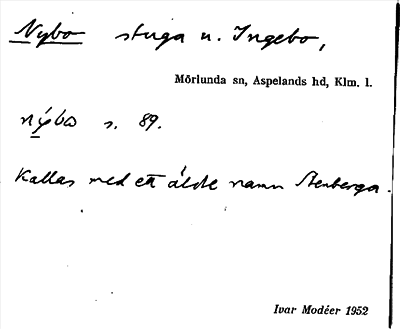 Nybo stuga u. Ingebo,
Mörlunda sn, Aspelands hd, Klm. l.
nýbo s. 89.
Kallas med ett äldre namn Stenberga.
Ivar Modéer 1952